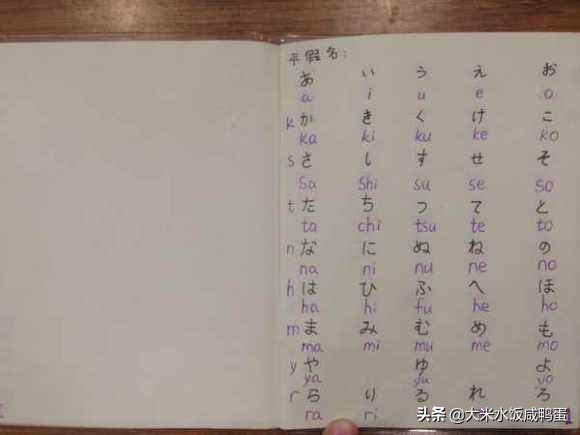 平假名:
あ い う え お
a i u e o
k か き く け こ
ka ki ku ke ko
s さ し す せ そ
Sa Shi su se so
t た ち つ て と
ta chi tsu te to
n な に ぬ ね の
na ni nu ne no
h は ひ ふ へ ほ
ha hi fu he ho
m ま み む め も
ma mi mu me mo
y や ゆ よ
ya yu yo
r ら り る れ ろ
ra ri
头条 @大米水饭咸鸭蛋